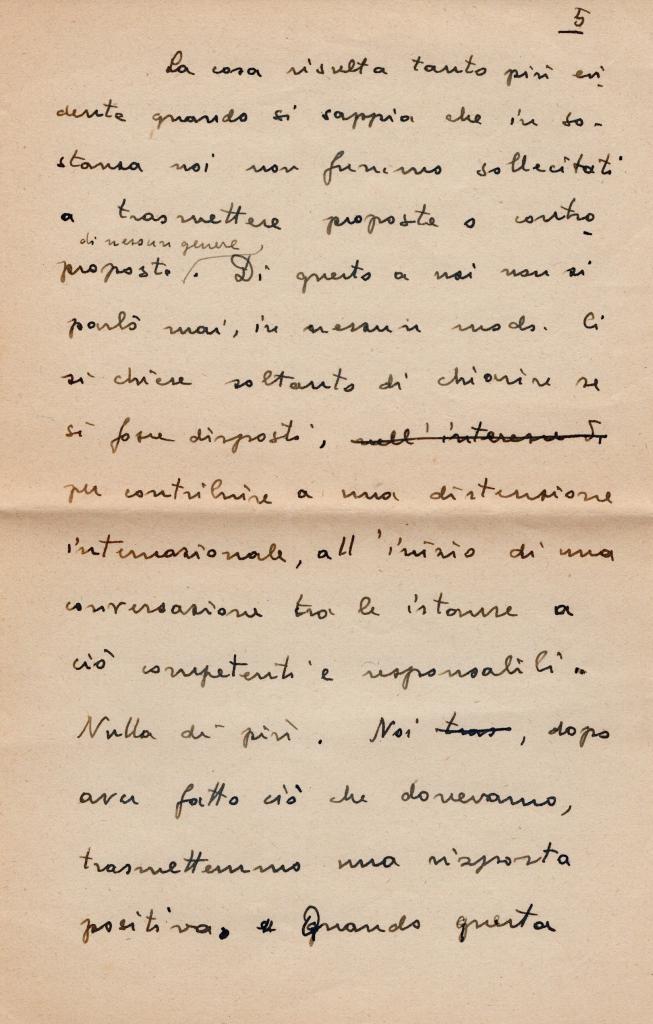 5
La cosa risulta tanto più evi-
dente quando si sappia che in so-
stanza noi non fummo sollecitati
a trasmettere proposte o contro-
di nessun genere
proposte. Di questo a noi non si
parlò mai, in nessun modo. Ci
si chiese soltanto di chiarire se
si fosse disposti, nell'interesse di
per contribuire a una distensione
internazionale, all'inizio di una
conversazione tra le istanze a
ciò competenti e responsabili.
Nulla di più. Noi tras, dopo
aver fatto ciò che dovevamo,
trasmettemmo una risposta
positiva. e Quando questa